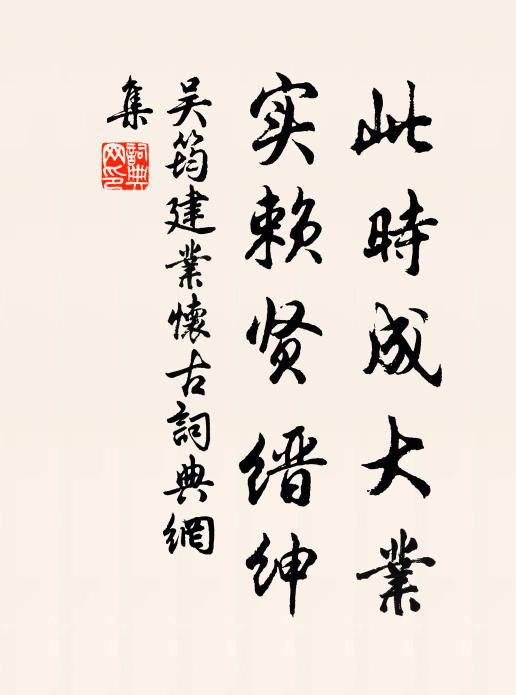 此時成大業
实赖贤缙绅
吴筠建業懷古詞典網
集
詞典網印